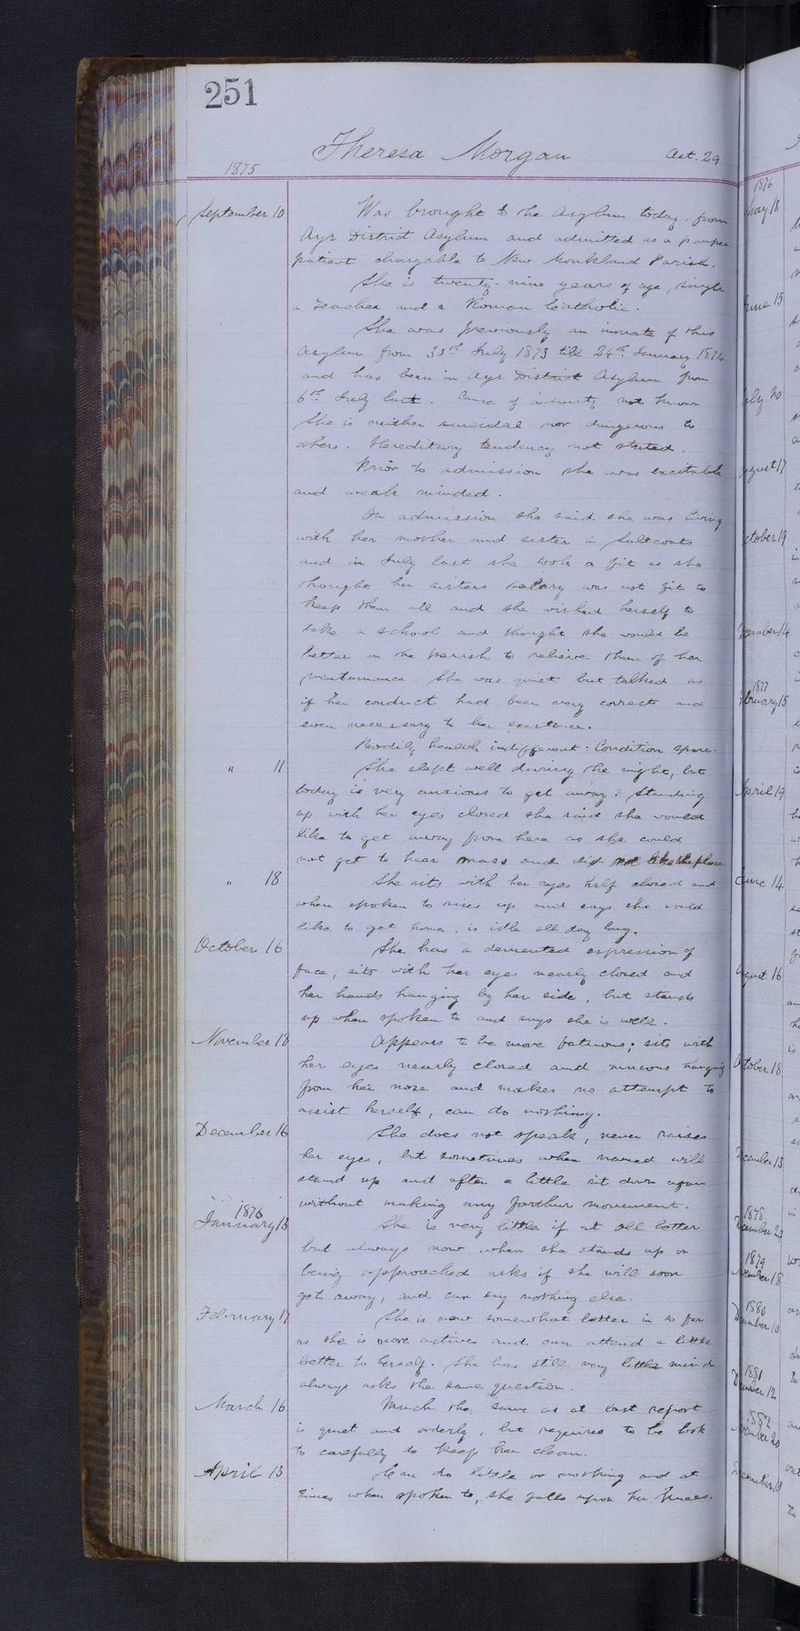 251
Theresa Morgan Aet. 29
1875
September 10 Was brought to the Asylum today from
Ayr District Asylum and admitted as a pauper
patient chargable to New Monkland Parish.
She is twenty-nine years of age, single
a Teacher and a Roman Catholic.
She was previously an inmate of this
Asylum from July 1873 till 24th January 1874
and has been in Ayr District Asylum from
6th July last. Cause of insanity not known
She is neither suicidal nor dangerous to
others. Hereditary tendency not stated.
Prior to admission she was excitable
and weak minded.
On admission she said she was living
with her mother and sister in Saltcoats
and in July last she took a fit as she
thought her sisters salary was not fit to
keep them all and she wished herself to
take a school and thought she would be
better on the Parish to relieve them of her
maintainance. She was quiet but talked as
if her conduct had been very correct and
even necessary to her existence.
Bodily health indifferent. Condition spare.
" 11 She slept well during the night, but
today is very anxious to get away. Standing
up with her eyes closed she said she would
like to get away from here as she could
not get to hear mass and did not like the place
" 18 She sits with her eyes half closed and
when spoken to rises up and says she would
like to get home, is idle all day long.
October 16 She has a demented expression of
face, sits with her eyes nearly closed and
her hands hanging by her side, but stands
up when spoken to and says she is well.
November 18 Appears to be more fatuous; sits with
her eyes nearly closed and mucous hanging
from her nose and makes no attempt to
assist herself, can do nothing.
December 16 She does not speak, never raises
her eyes, but sometimes when named will
stand up and after a little sit down again
without making any further movement.
1876
January 13 She is very little if at all better
but always now when she stands up on
being approached asks if she will soon
get away, and can say nothing else.
February 17 She is now somewhat better in so far
as she is more active and can attend a little
better to herself. She has still very little mind
always asks the same question.
March 16 Much the same as at last report
is quiet and orderly, but requires to be look
to carefully to keep her clean.
April 13 Can do little or nothing and at
times when spoken to, she falls upon her knees.
1876
May 18
June 15
July 20
August 17
October 19
December 14
1877
February 15
April 19
June 14
August 16
October 18
December 13
1878
1879
1880
1881
1882